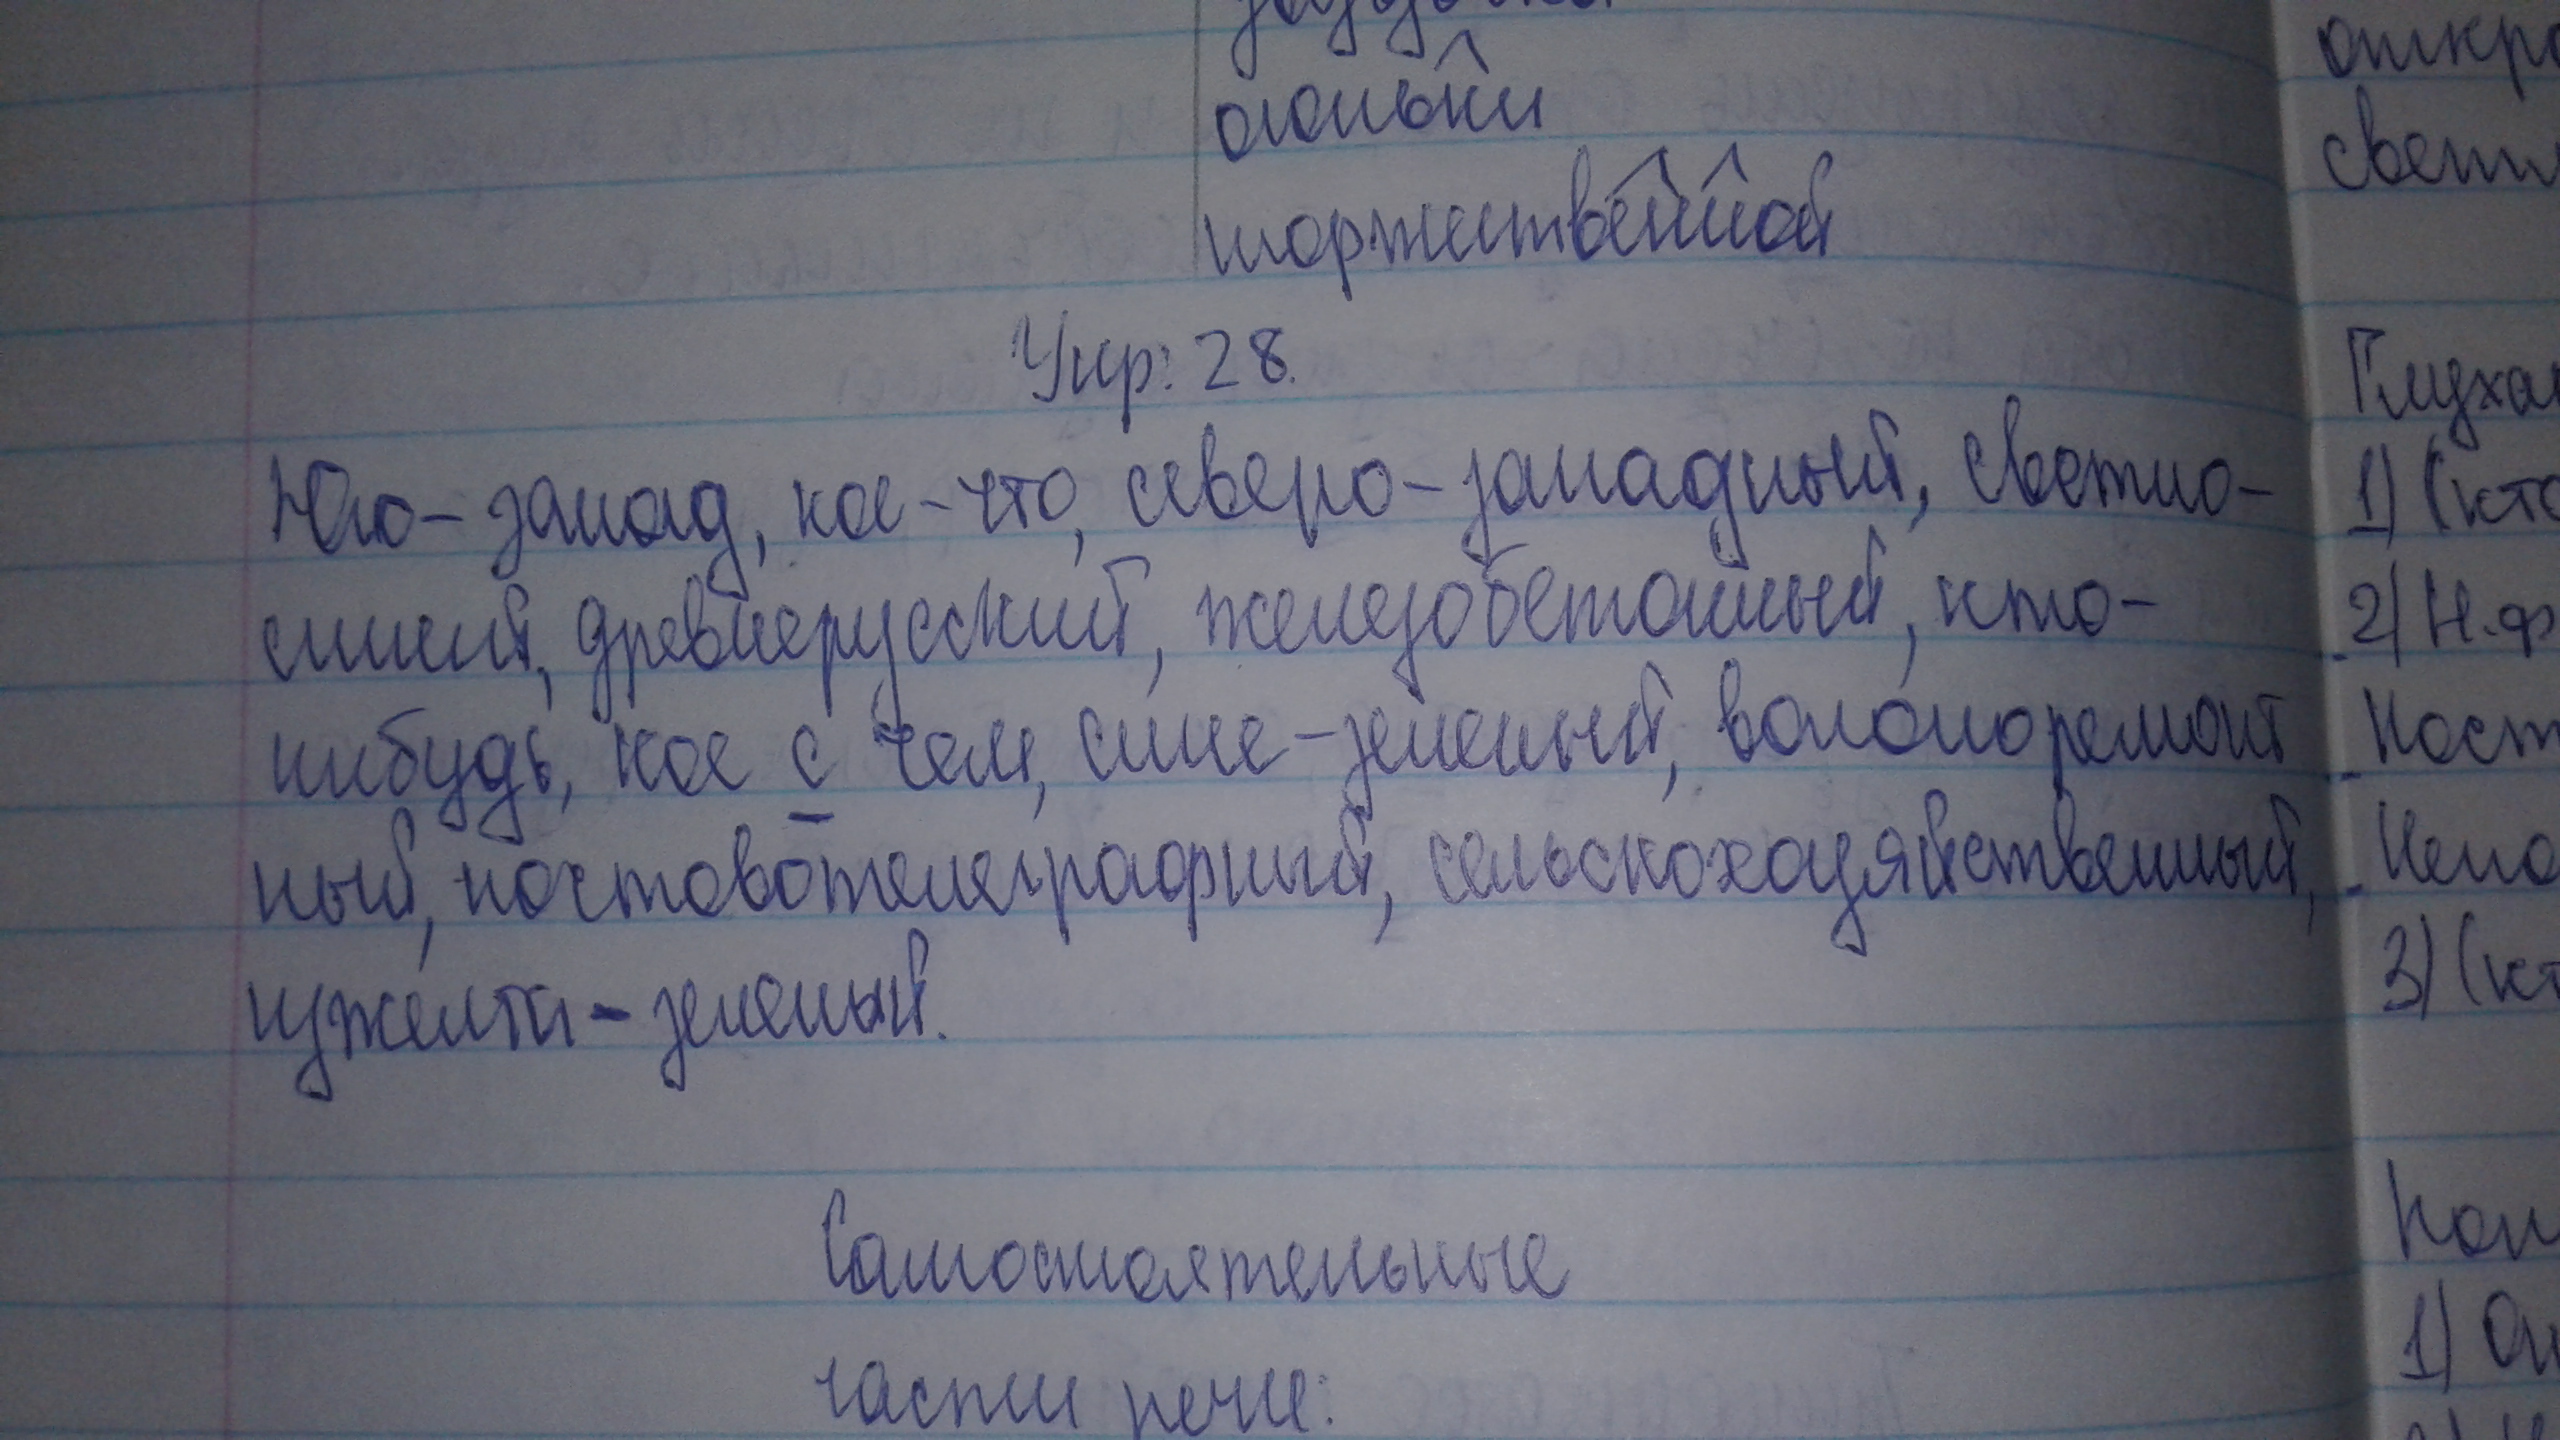 огоньки
торжественной
Упр: 28.
Юго-запад, кое-что, северо-западный, светло-
синий, древнерусский, железобетонный, кто-
нибудь, кое с чем, сине-зеленый, вагоноремонт
ный, почтовотелеграфный, сельскохозяйственный,
изжелта-зеленый.
Самостоятельные
части речи:
откро
светл
Глуха
1) (кто
2) Н.ф
3) (кт
1) Он